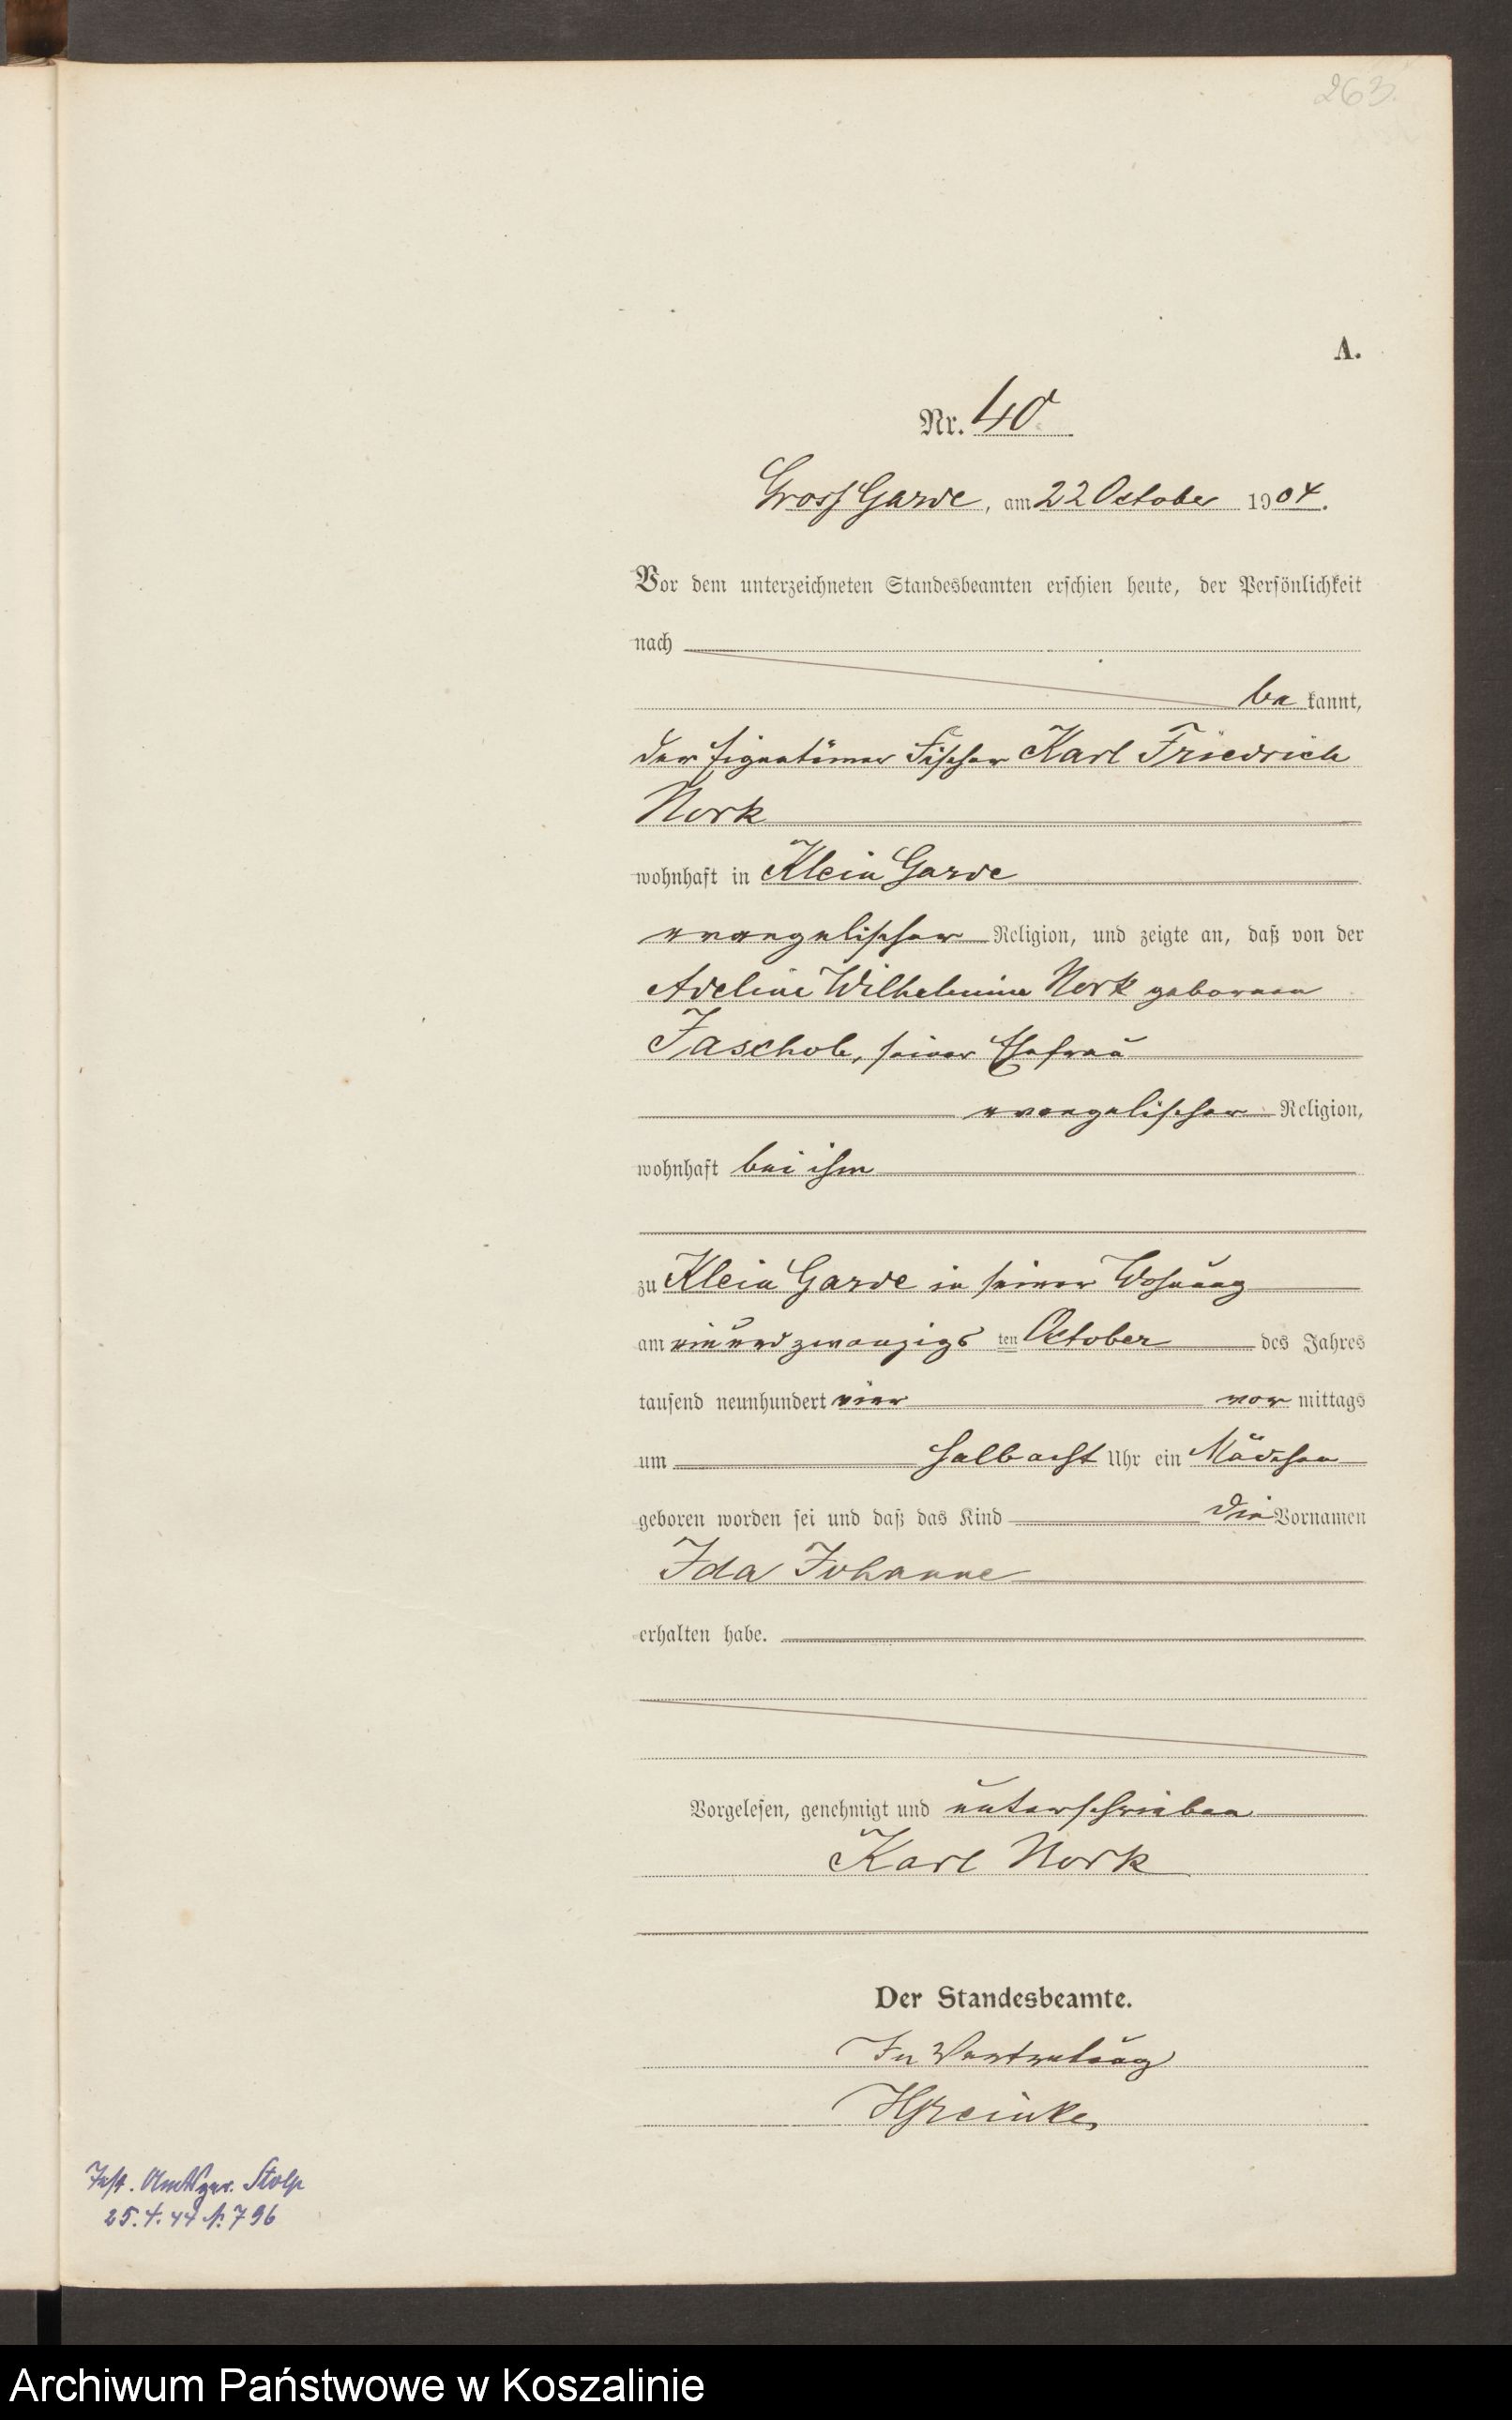 263.
A.
Nr. 40
Gross Garde, am 22 October 1904.
Vor dem unterzeichneten Standesbeamten erschien heute, der Persönlichkeit
nach
be kannt,
der Eigentümer Fischer Karl Friedrich
Nork
wohnhaft in Klein Garde
evangelischer Religion, und zeigte an, daß von der
Adeline Wilhelmine Nork geborenen
Jaschob, seiner Ehefrau
evangelischer Religion,
wohnhaft bei ihm
zu Klein Garde in seiner Wohnung
am einundzwanzigs ten October des Jahres
tausend neunhundert vier vor mittags
um halb acht Uhr ein Mädchen
geboren worden sei und daß das Kind die Vornamen
Ida Johanne
erhalten habe.
Vorgelesen, genehmigt und unterschrieben
Karl Nork
Der Standesbeamte.
In Vertretung
Amtsger. Stolp
25.4.44 N. 796
Archiwum Państwowe w Koszalinie